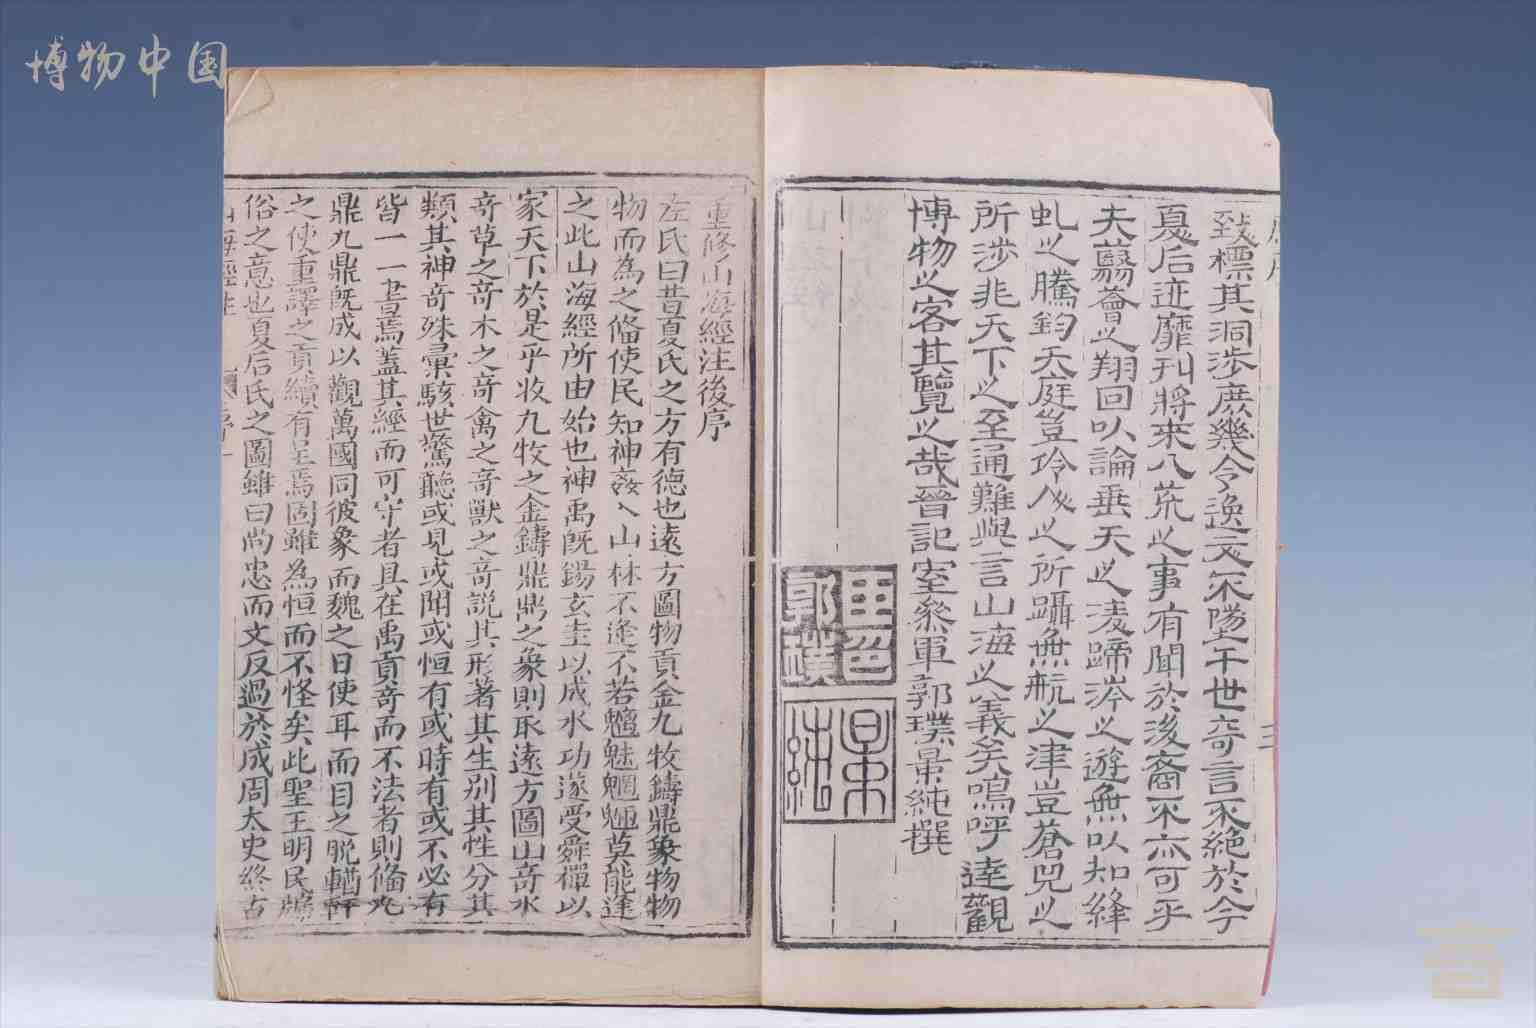 博物中国
致標其洞涉庶幾令逸文不墜于世奇言不絕於今
夏后迹靡刊將來八荒之事有聞於後裔不亦可乎
夫蘙薈之翔叵以論垂天之凌蹄涔之遊無以知絳
虬之騰鈞天庭豈伶人之所躡無航之津豈蒼兕之
所涉非天下之至通難與言山海之義矣嗚呼達觀
博物之客其覽之哉晉記室參軍郭璞景純撰
郭璞
景純
重修山海經注後序
左氏曰昔夏氏之方有德也遠方圖物貢金九牧鑄鼎象物物
物而為之俻使民知神姦入山林不逢不若魑魅魍魎莫能逢
之此山海經所由始也神禹旣錫玄圭以成水功遂受舜禪以
家天下於是乎收九牧之金鑄鼎鼎之象則取遠方圖山奇水
奇草之奇木之奇禽之奇獸之奇說其形著其生別其性分其
類其神奇殊彙駭世驚聽或見或聞或恒有或時有或不必有
皆一一書焉蓋其經而可守者具在禹貢奇而不法者則俻九
鼎九鼎旣成以觀萬國同彼象而魏之日使耳而目之脫輶軒
之使重譯之貢續有呈焉固雖為恒而不怪矣此聖王明民牖
俗之意也夏后氏之圖雖曰尚忠而文反過於成周太史終古
山海經注